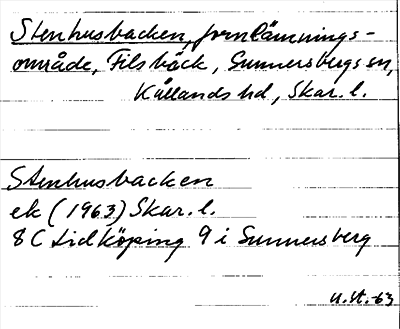 Stenhusbacken, fornlämnings-
område, Filsbäck, Sunnersbergs sn,
Kållands hd, Skar. l.
Stenhusbacken
ek (1963) Skar. l.
8 C Lidköping 9 i Sunnersberg
U.St. 63